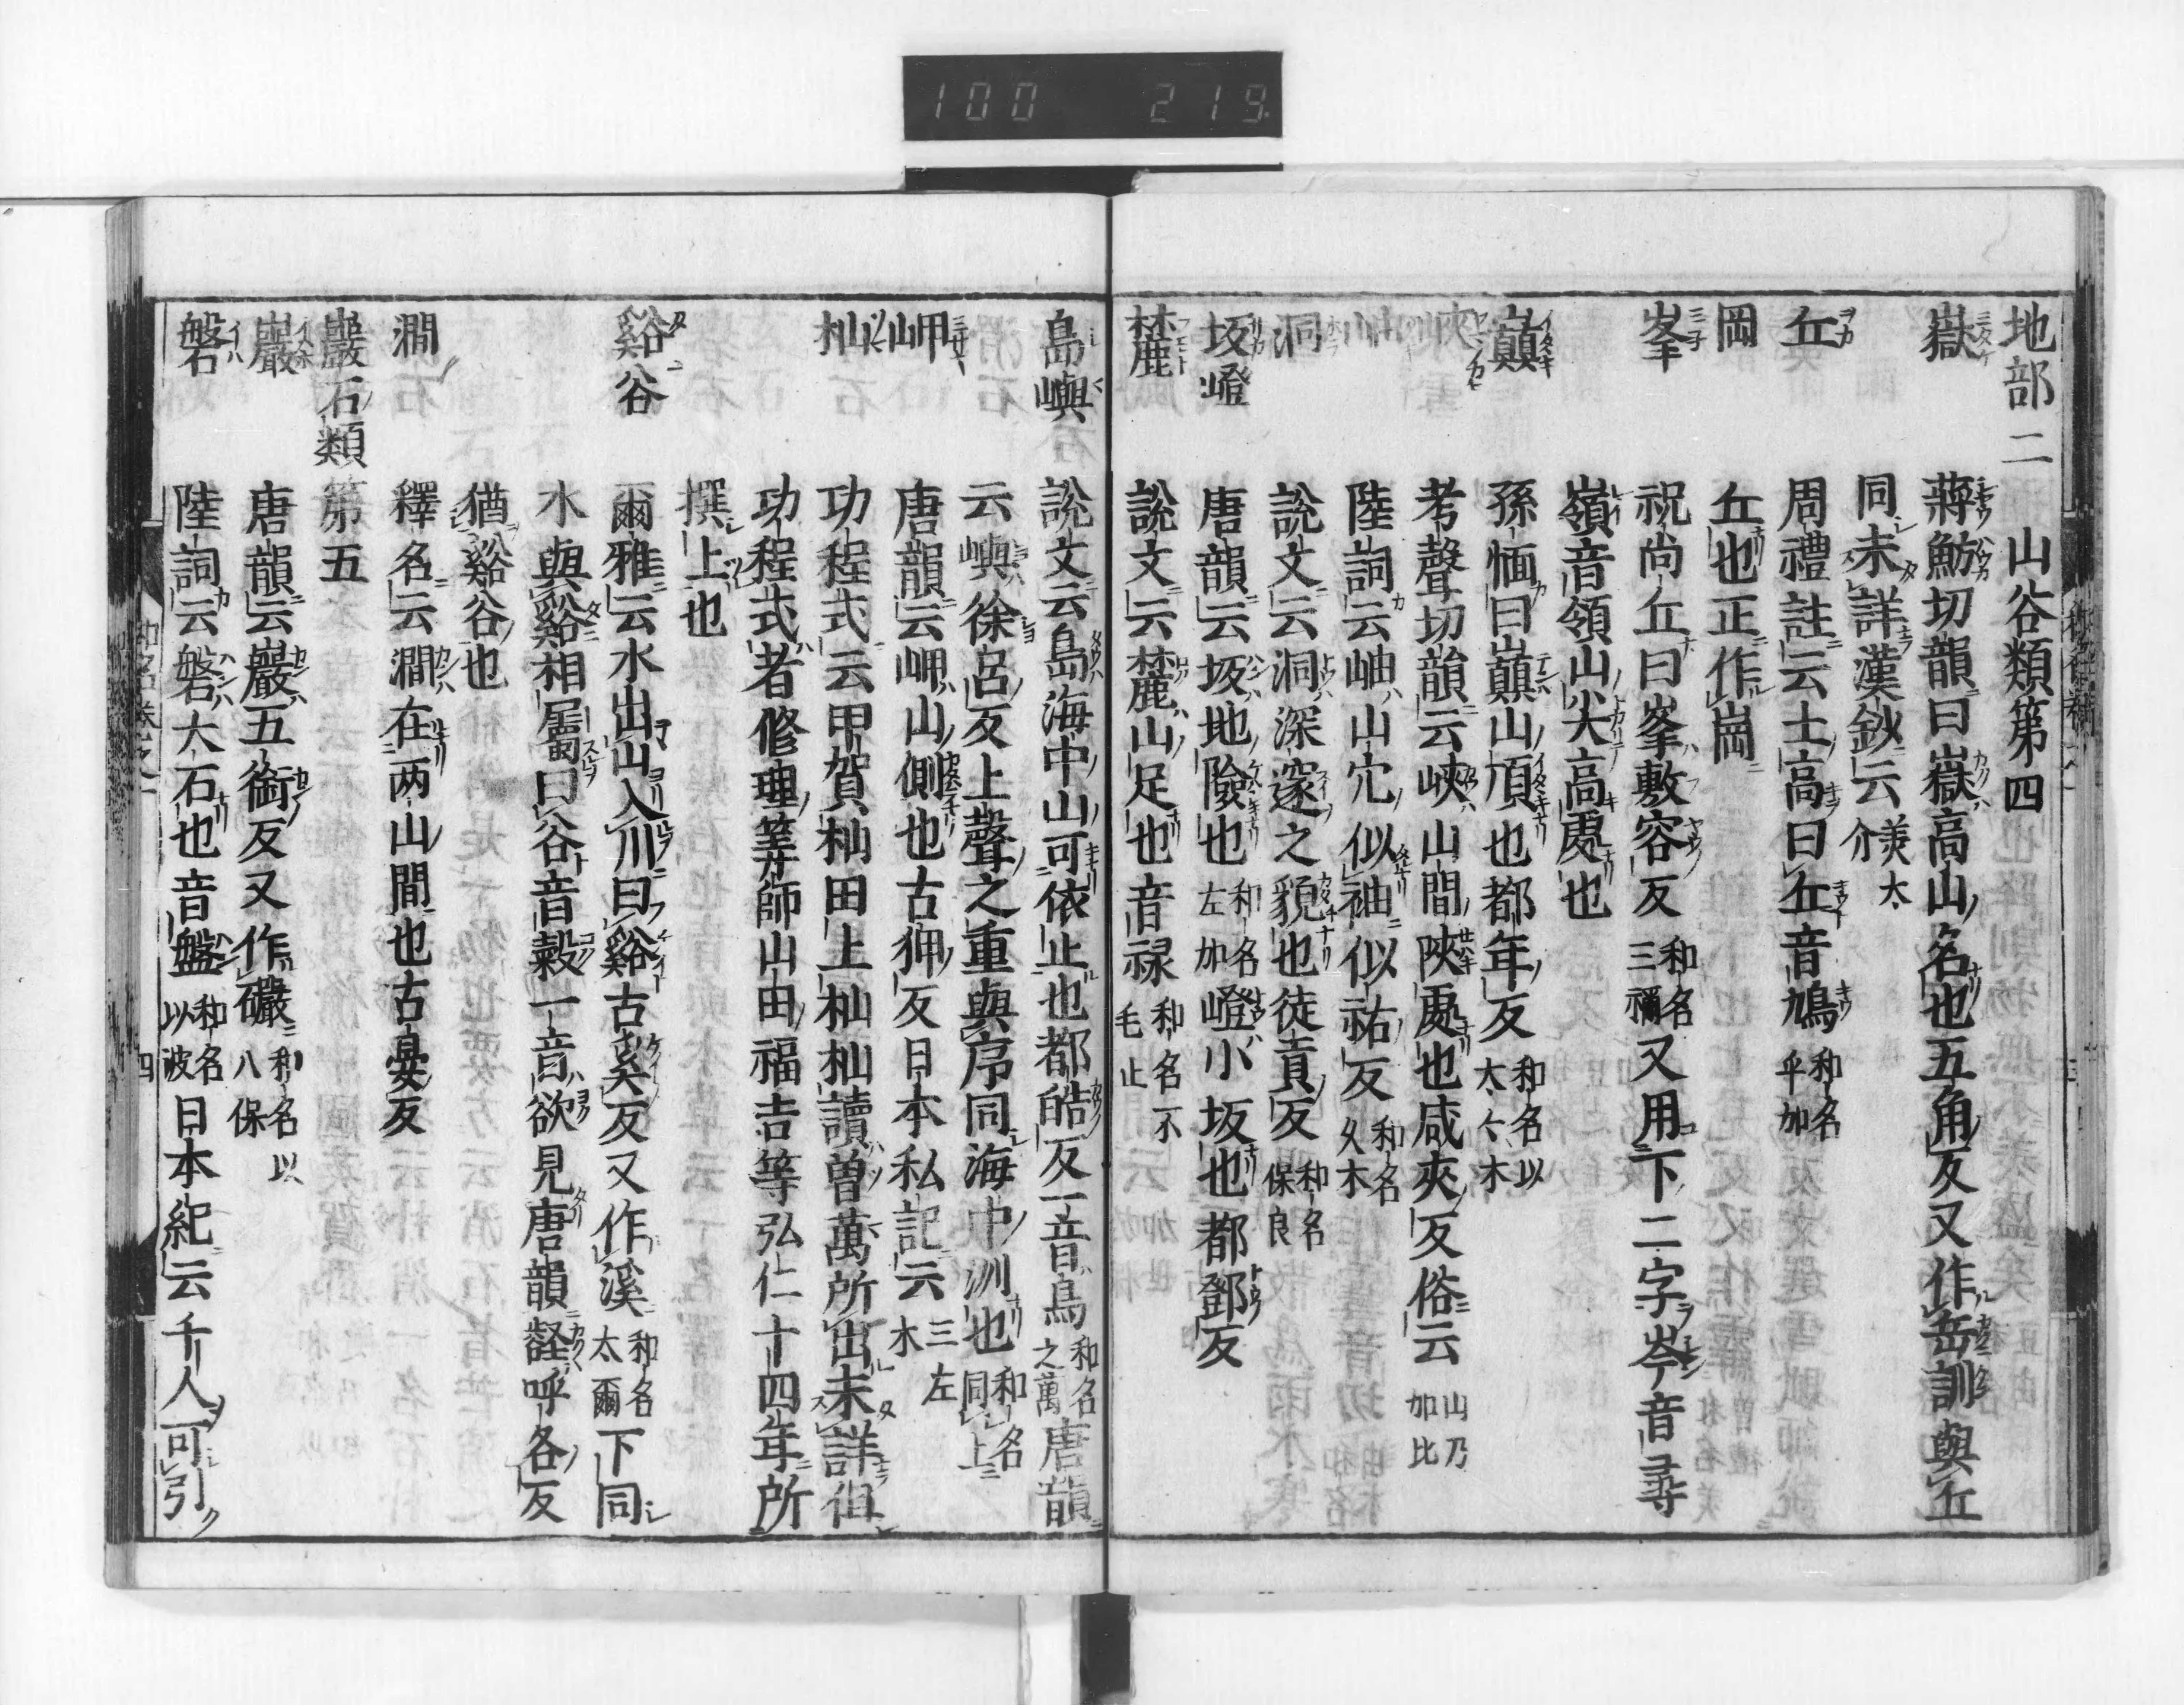 100 219
地部二 山谷類第四
嶽 蔣魴切韻曰嶽高山名也五角反又作岳訓與丘
同未詳漢鈔云美太介
丘 周禮註云土高曰丘音鳩和名乎加
岡 丘也正作崗
峯 祝尚丘曰峯敷容反和名三禰又用下二字岑音尋
嶺音領山尖高處也
巓 孫愐曰巓山頂也都年反和名以太々木
峽 考聲切韻云峽山間陜處也咸夾反俗云山乃加比
岫 陸詞云岫山穴似袖似祐反和名久木
洞 說文云洞深邃之貌也徒貢反和名保良
坂嶝 唐韻云坂地險也和名左加嶝小坂也都鄧反
麓 說文云麓山足也音禄和名不毛止
島嶼 說文云島海中山可依止也都皓反一音鳥和名之萬唐韻
云嶼徐呂反上聲之重與序同海中洲也和名同上
岬 唐韻云岬山側也古狎反日本私記云三左木
杣 功程式云甲賀杣田上杣杣讀曽萬所出未詳但
功程式者修理筭師山田福吉等弘仁十四年所
撰上也
谿谷 爾雅云水出山入川曰谿古奚反又作溪和名太爾下同
水與谿相屬曰谷音穀一音欲見唐韻㕡呼各反
猶谿谷也
澗 釋名云澗在两山間也古晏反
巖石類第五
巖 唐韻云巖五銜反又作礹和名以八保
磐 陸詞云磐大石也音盤和名以波日本紀云千人可引
四